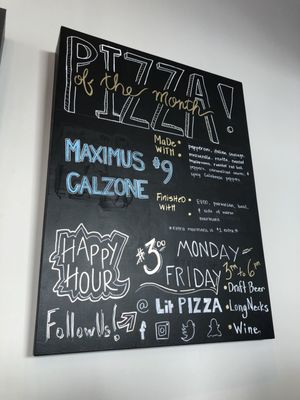 PIZZA!
of the month
MAXIMUS $9
CALZONE
MADE WITH • pepperoni, Italian sausage,
mozzarella, ricotta, roasted
mushrooms, roasted red bell
peppers, caramelized onions, &
spicy Calabrese peppers.
Finished with • EVOO, parmesan, basil,
& side of warm
marinara
*Extra marinara is $1 extra*
HAPPY HOUR
$3.00
MONDAY -
FRIDAY
3pm to 6pm
• Draft Beer
• LongNecks
• Wine.
Follow Us!
@ Lit PIZZA